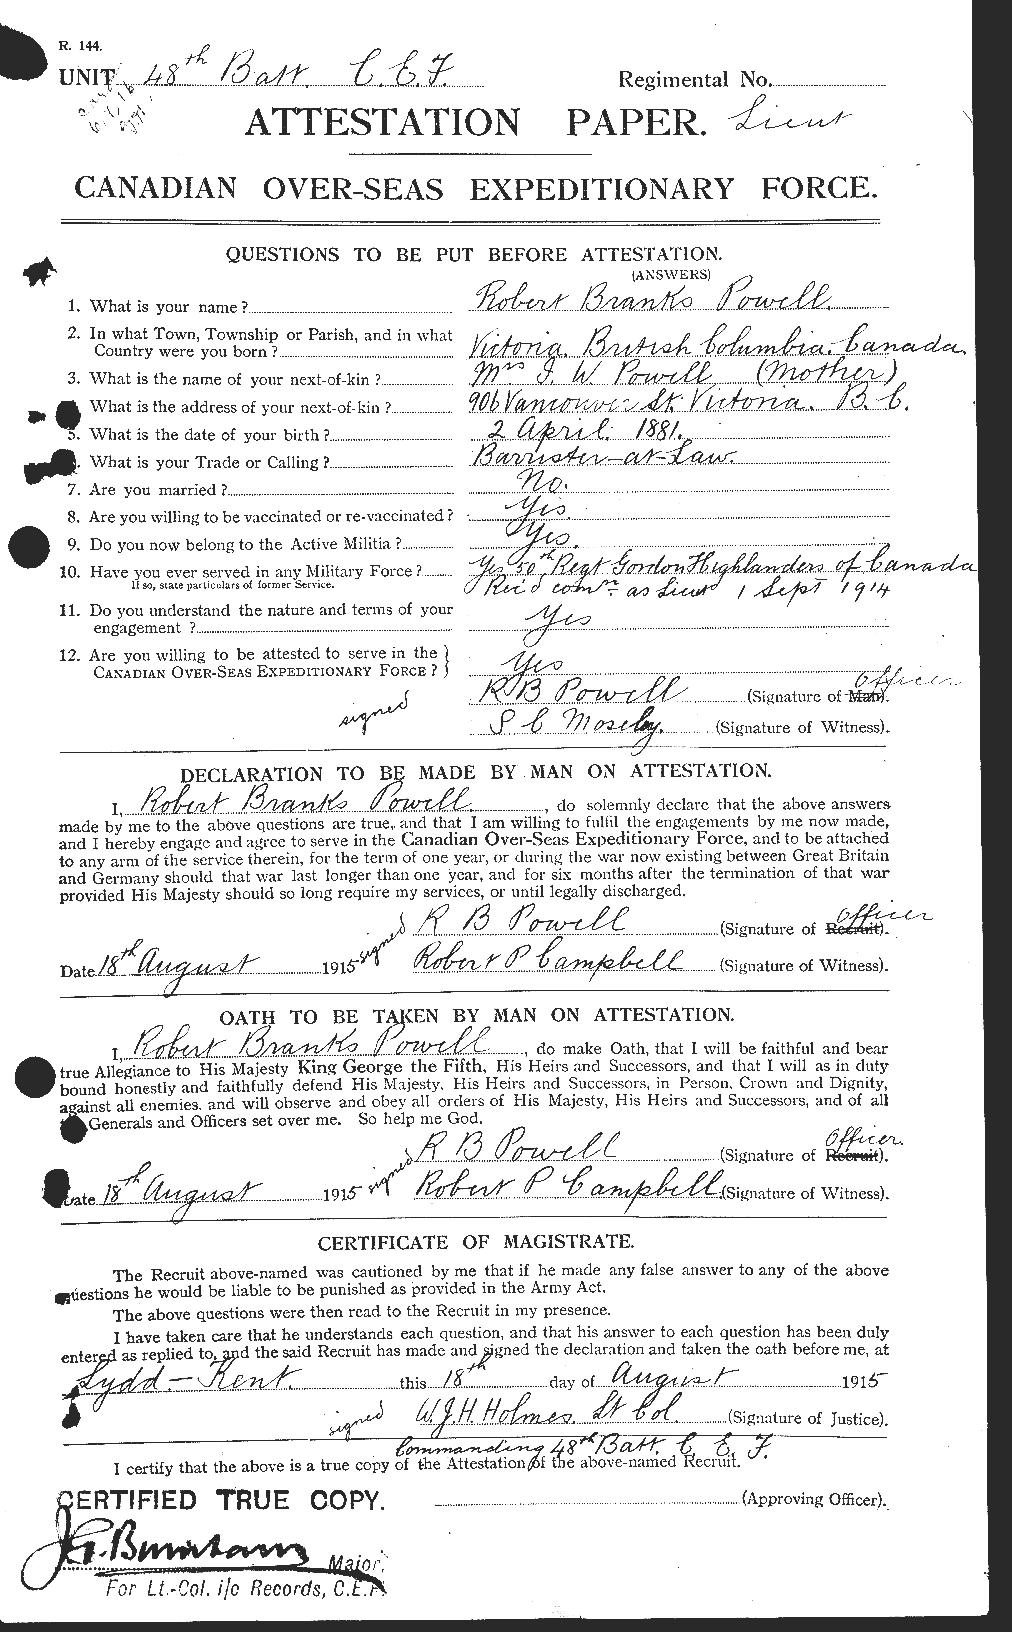 R. 144.
UNIT 48th Batt. C.E.F. Regimental No.
ATTESTATION PAPER. Lieut
CANADIAN OVER-SEAS EXPEDITIONARY FORCE.
QUESTIONS TO BE PUT BEFORE ATTESTATION.
(ANSWERS)
1. What is your name? Robert Branks Powell.
2. In what Town, Township or Parish, and in what
Country were you born? Victoria. British Columbia. Canada.
3. What is the name of your next-of-kin? Mrs I. W. Powell (Mother)
What is the address of your next-of-kin? 906 Vancouver St. Victoria. B.C.
5. What is the date of your birth? 2 April. 1881.
What is your Trade or Calling? Barrister-at-Law.
7. Are you married? No.
8. Are you willing to be vaccinated or re-vaccinated? Yes.
9. Do you now belong to the Active Militia? Yes.
10. Have you ever served in any Military Force? Yes 50th Regt Gordon Highlanders of Canada
If so, state particulars of former Service. Rec'd comn as Lieut 1 Sept 1914
11. Do you understand the nature and terms of your
engagement? Yes
12. Are you willing to be attested to serve in the
CANADIAN OVER-SEAS EXPEDITIONARY FORCE? Yes
signed R B Powell (Signature of Man). Officer
S C Moseby. (Signature of Witness).
DECLARATION TO BE MADE BY MAN ON ATTESTATION.
I, Robert Branks Powell, do solemnly declare that the above answers
made by me to the above questions are true, and that I am willing to fulfil the engagements by me now made,
and I hereby engage and agree to serve in the Canadian Over-Seas Expeditionary Force, and to be attached
to any arm of the service therein, for the term of one year, or during the war now existing between Great Britain
and Germany should that war last longer than one year, and for six months after the termination of that war
provided His Majesty should so long require my services, or until legally discharged.
signed R B Powell (Signature of Recruit). Officer
Date 18th August 1915 Robert P Campbell (Signature of Witness).
OATH TO BE TAKEN BY MAN ON ATTESTATION.
I, Robert Branks Powell, do make Oath, that I will be faithful and bear
true Allegiance to His Majesty King George the Fifth, His Heirs and Successors, and that I will as in duty
bound honestly and faithfully defend His Majesty, His Heirs and Successors, in Person, Crown and Dignity,
against all enemies, and will observe and obey all orders of His Majesty, His Heirs and Successors, and of all
Generals and Officers set over me. So help me God.
signed R B Powell (Signature of Recruit). Officer.
Date 18th August 1915 Robert P Campbell (Signature of Witness).
CERTIFICATE OF MAGISTRATE.
The Recruit above-named was cautioned by me that if he made any false answer to any of the above
questions he would be liable to be punished as provided in the Army Act.
The above questions were then read to the Recruit in my presence.
I have taken care that he understands each question, and that his answer to each question has been duly
entered as replied to, and the said Recruit has made and signed the declaration and taken the oath before me, at
Lydd - Kent. this 18th day of August 1915
signed W.J.H. Holmes. Lt Col. (Signature of Justice).
Commanding 48th Batt. C. E. F.
I certify that the above is a true copy of the Attestation of the above-named Recruit.
CERTIFIED TRUE COPY. (Approving Officer).
Major,
For Lt.-Col. i/c Records, C.E.F.